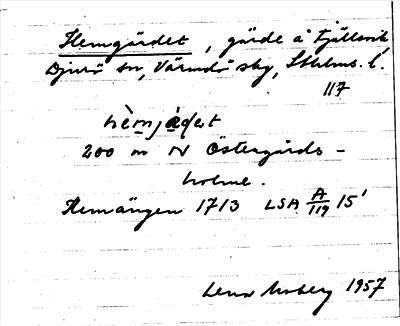 Hemgärdet, gärde å Fjällsvik
Djurö sn, Värmdö skg, Sthlms l.
117
hèmjädet
200 m N Östergårds-
holme.
Hemängen 1713 LSA A/119 15'
Lena Moberg 1957